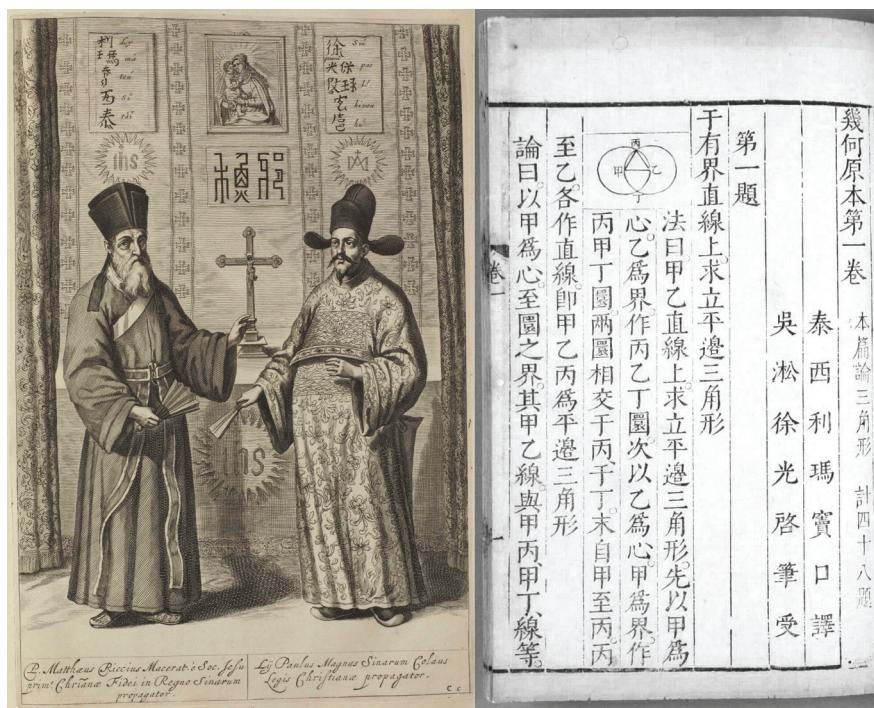 利瑪竇西泰
Ly
ma
teú
Si
徐保祿
光啓
Siú
pao
lò
ihs
ihs
P. Matthæus Riccius Macerat: è Soc. Jesu
prim.ˢ Chr̃ianæ Fidei in Regno Sinarum
propagator.
Lỹ Paulus Magnus Sinarum Colaus
Legis Christianæ propagator.
C c
幾何原本第一卷 本篇論三角形 計四十八題
泰西利瑪竇口譯
吳淞徐光啓筆受
第一題
于有界直線上。求立平邊三角形
丙
甲
乙
丁
法曰。甲乙直線上。求立平邊三角形。先以甲爲
心。乙爲界。作丙乙丁圜。次以乙爲心。甲爲界。作
丙甲丁圜。兩圜相交于丙、于丁。末自甲至丙、丙
至乙。各作直線。即甲乙丙爲平邊三角形
論曰。以甲爲心。至圜之界。其甲乙線。與甲丙、甲丁、線等。
卷一
一